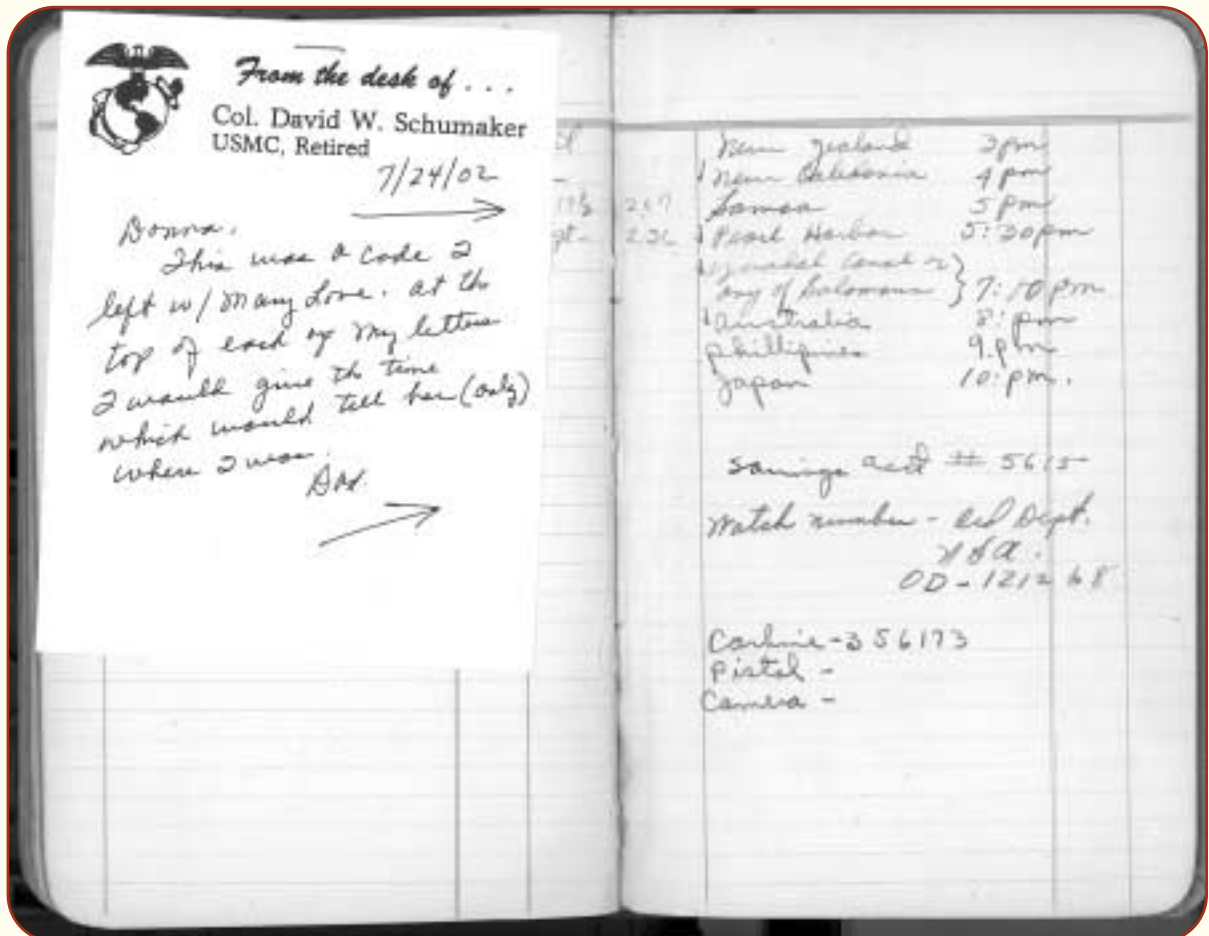 From the desk of . . .
Col. David W. Schumaker
USMC, Retired
7/24/02
Donna,
This was a code I
left w/ Mary Love. at the
top of each of my letters
I would give the time
which would tell her (only)
where I was.
Dad.
New Zealand 3pm
New Caledonia 4pm
Samoa 5pm
Pearl Harbor 5:30pm
Guadal Canal or
any of Solomons } 7:10 pm
Australia 8: pm
Phillipines 9. pm
Japan 10: pm.
Savings acct # 5615
Watch number - Dept.
OD - 121268
Carbine - 356173
Pistol -
Camera -